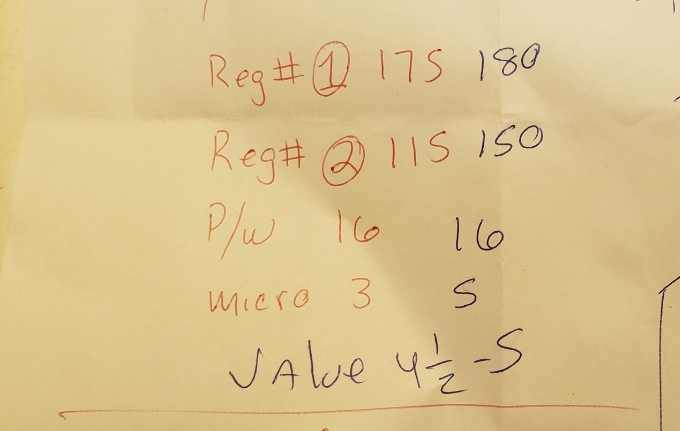 Reg# ① 175 180
Reg# ② 115 150
P/W 16 16
Micro 3 5
VAlue 4½-5